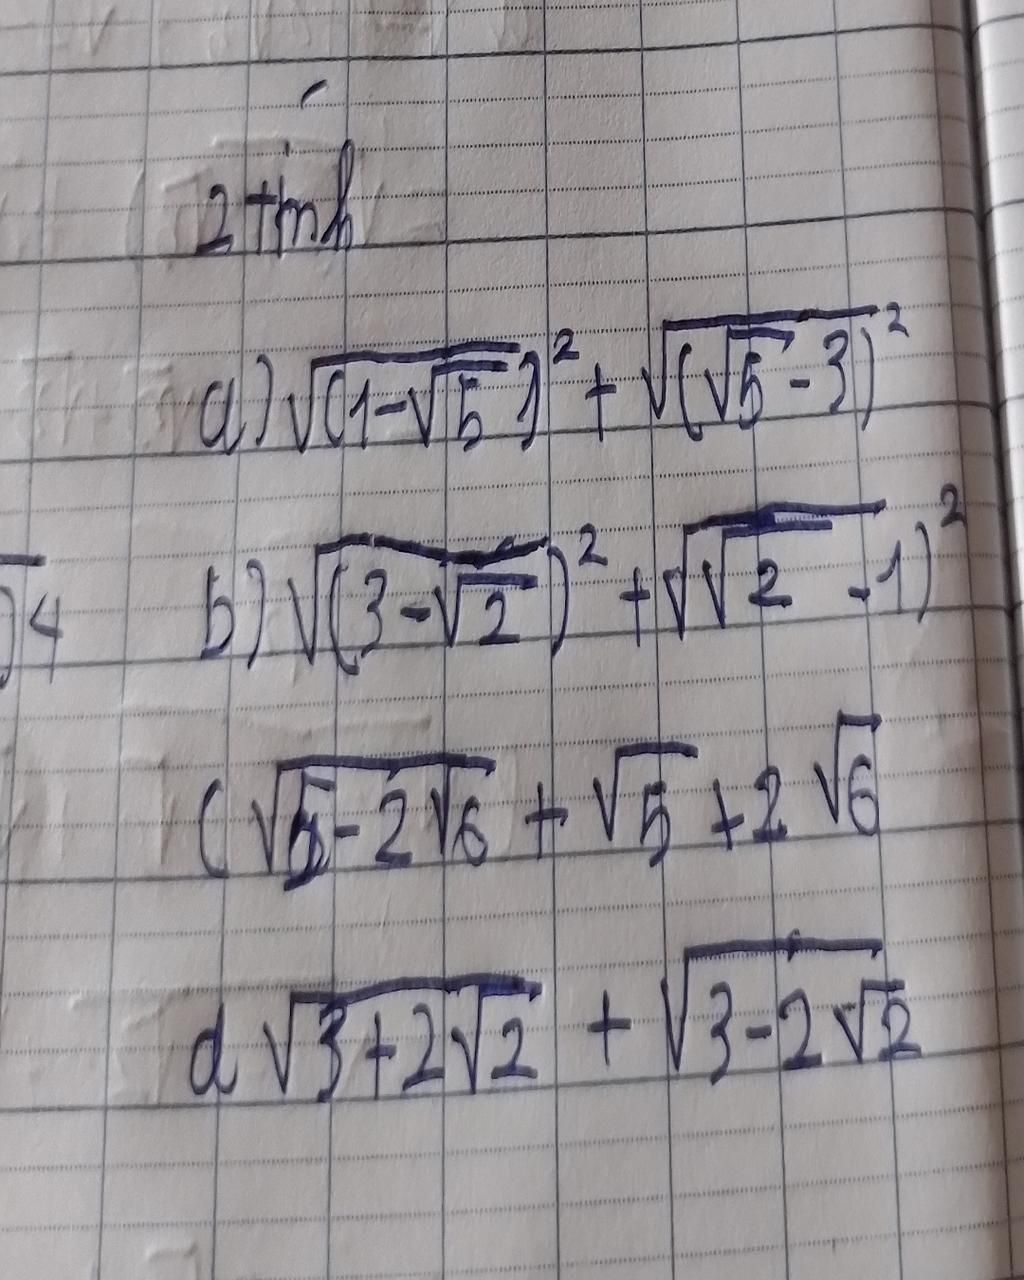 2 tính
a) √(1-√5)² + √(√5-3)²
b) √(3-√2)² + √(√2-1)²
)4
c √5-2√6 + √5 + 2√6
d √3+2√2 + √3-2√2